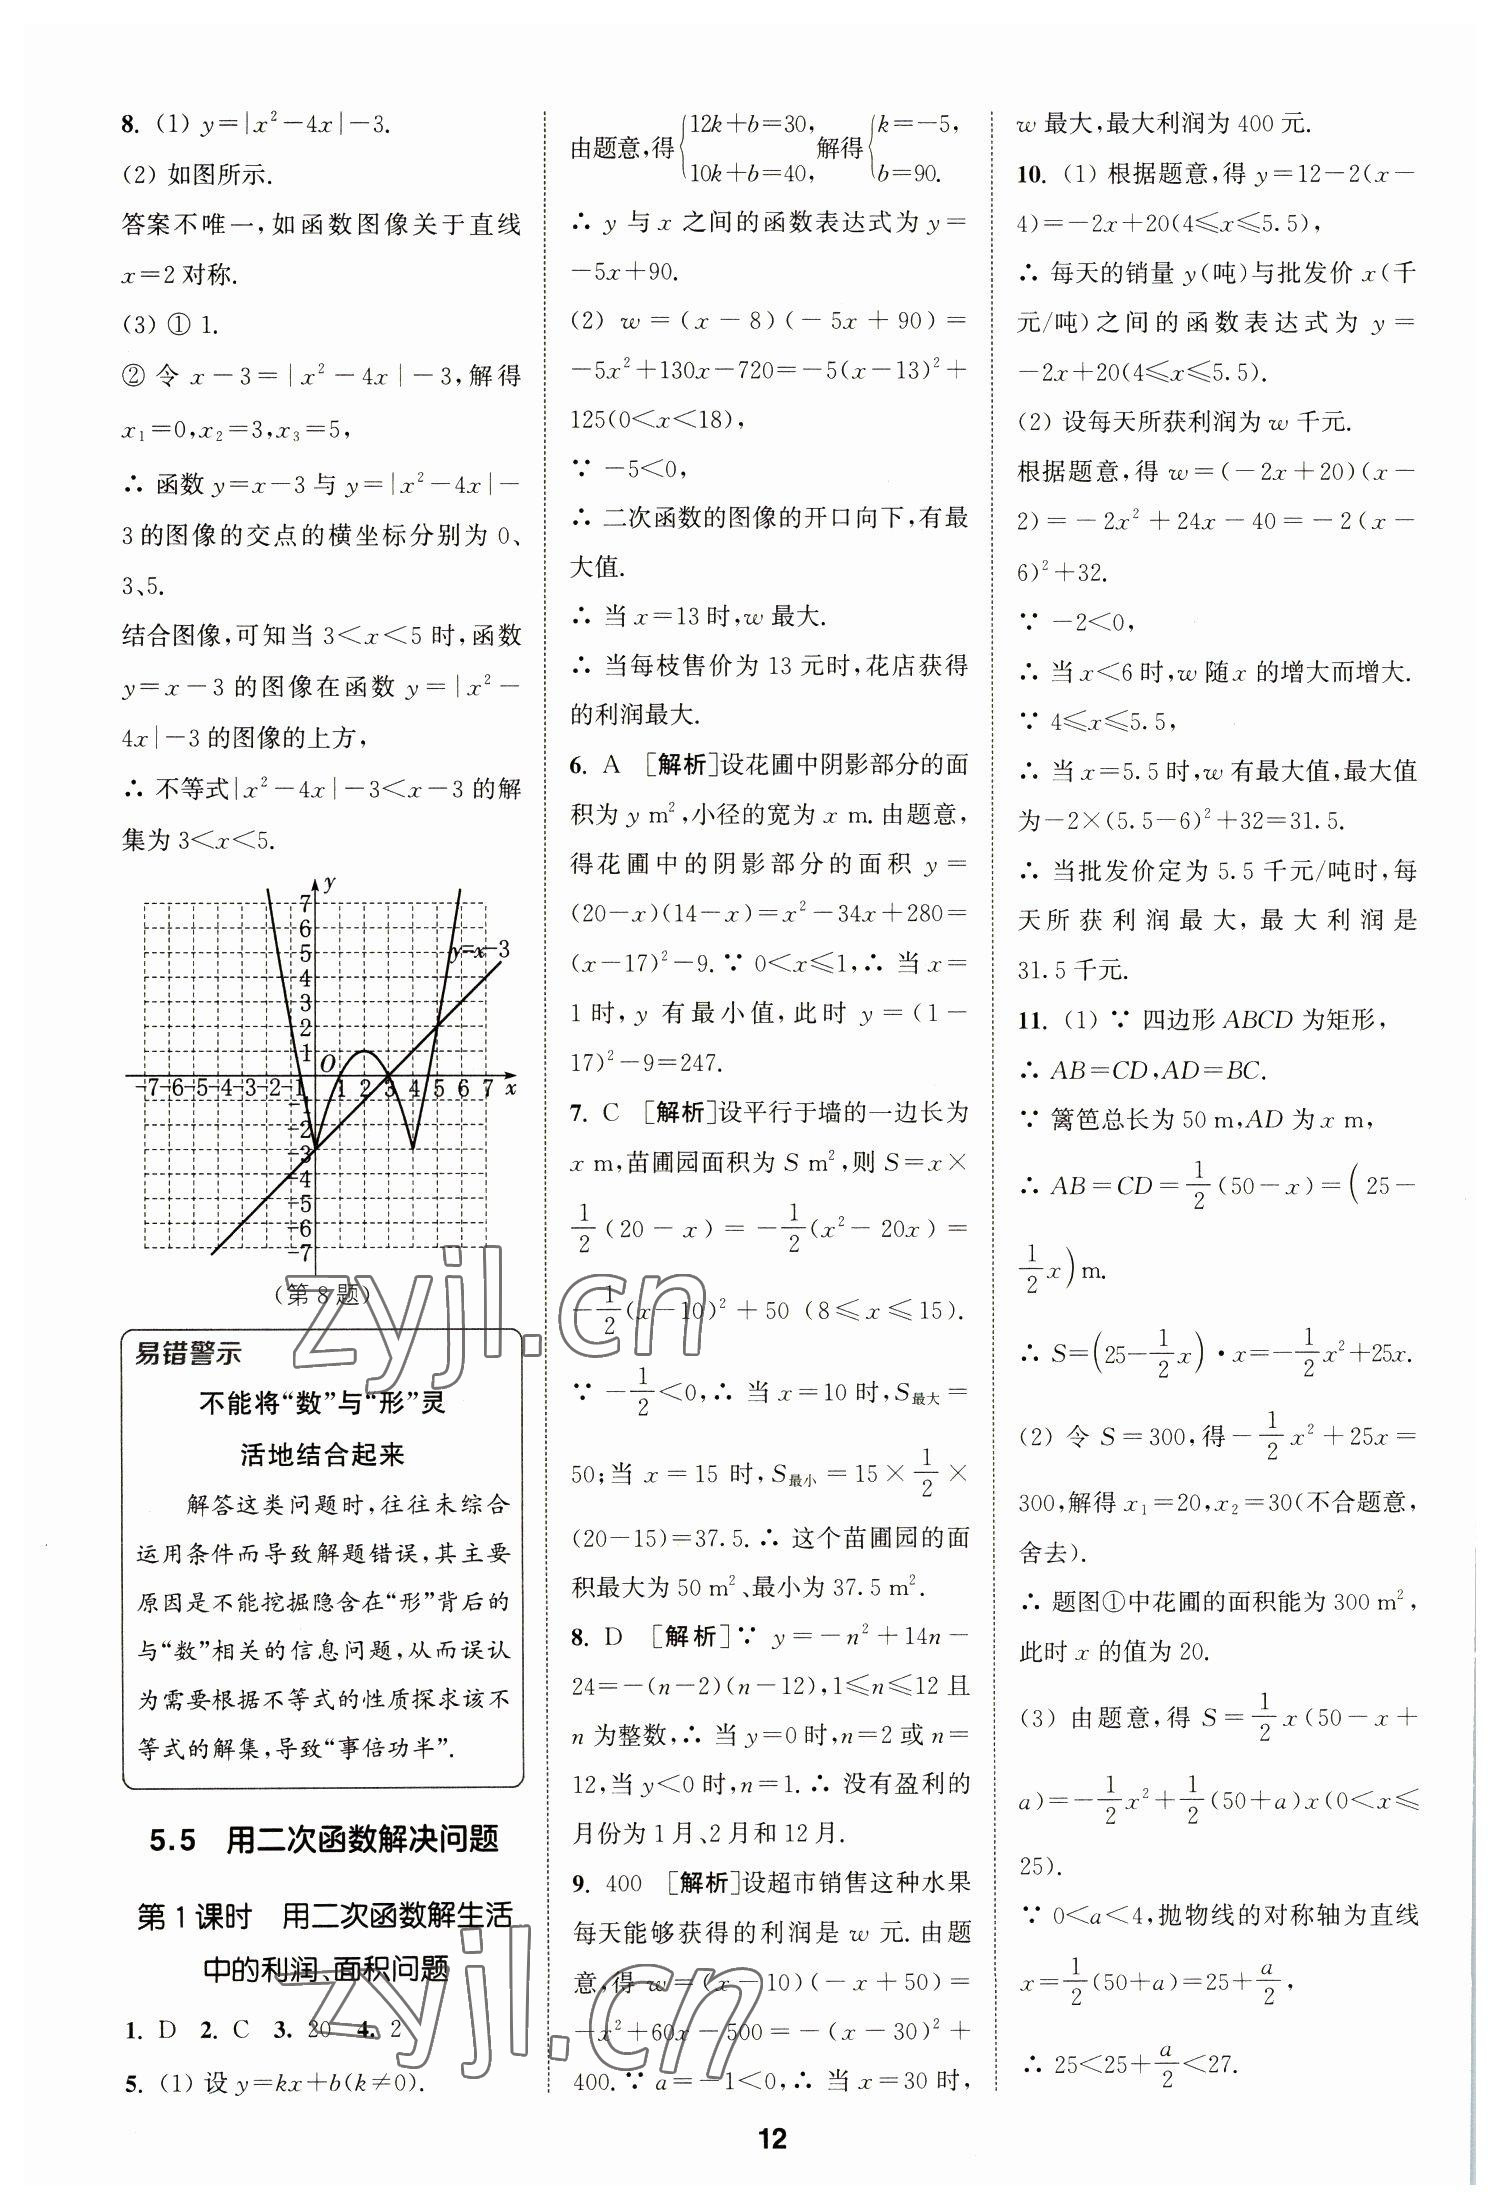 8. (1) y=|x²-4x|-3.
(2) 如图所示.
答案不唯一,如函数图像关于直线
x=2对称.
(3) ① 1.
② 令 x-3=|x²-4x|-3,解得
x₁=0,x₂=3,x₃=5,
∴ 函数 y=x-3 与 y=|x²-4x|-
3的图像的交点的横坐标分别为 0、
3、5.
结合图像,可知当 3<x<5 时,函数
y=x-3 的图像在函数 y=|x²-
4x|-3的图像的上方,
∴ 不等式|x²-4x|-3<x-3的解
集为3<x<5.
y
7
6
5
4
3
2
1
y=x-3
O
-7-6-5-4-3-2-1 1 2 3 4 5 6 7 x
-1
-2
-3
-4
-5
-6
-7
(第8题)
易错警示
不能将“数”与“形”灵
活地结合起来
解答这类问题时,往往未综合
运用条件而导致解题错误,其主要
原因是不能挖掘隐含在“形”背后的
与“数”相关的信息问题,从而误认
为需要根据不等式的性质探求该不
等式的解集,导致“事倍功半”.
5.5 用二次函数解决问题
第1课时 用二次函数解生活
中的利润、面积问题
1. D 2. C 3. 20 4. 2
5. (1) 设 y=kx+b(k≠0).
由题意,得{12k+b=30, 10k+b=40, 解得{k=-5, b=90.
∴ y 与 x 之间的函数表达式为 y=
-5x+90.
(2) w=(x-8)(-5x+90)=
-5x²+130x-720=-5(x-13)²+
125(0<x<18),
∵ -5<0,
∴ 二次函数的图像的开口向下,有最
大值.
∴ 当 x=13 时,w 最大.
∴ 当每枝售价为 13 元时,花店获得
的利润最大.
6. A [解析]设花圃中阴影部分的面
积为 y m²,小径的宽为 x m.由题意,
得花圃中的阴影部分的面积 y=
(20-x)(14-x)=x²-34x+280=
(x-17)²-9.∵ 0<x≤1,∴ 当 x=
1时,y 有最小值,此时 y=(1-
17)²-9=247.
7. C [解析]设平行于墙的一边长为
x m,苗圃园面积为 S m²,则 S=x×
1/2(20-x)=-1/2(x²-20x)=
-1/2(x-10)²+50 (8≤x≤15).
∵ -1/2<0,∴ 当 x=10 时,S最大=
50;当 x=15 时,S最小=15×1/2×
(20-15)=37.5.∴ 这个苗圃园的面
积最大为 50 m²、最小为 37.5 m².
8. D [解析]∵ y=-n²+14n-
24=-(n-2)(n-12),1≤n≤12 且
n 为整数,∴ 当 y=0 时,n=2 或 n=
12,当 y<0 时,n=1.∴ 没有盈利的
月份为1月、2月和12月.
9. 400 [解析]设超市销售这种水果
每天能够获得的利润是 w 元.由题
意,得 w=(x-10)(-x+50)=
-x²+60x-500=-(x-30)²+
400.∵ a=-1<0,∴ 当 x=30 时,
w 最大,最大利润为 400 元.
10. (1) 根据题意,得 y=12-2(x-
4)=-2x+20(4≤x≤5.5),
∴ 每天的销量 y(吨)与批发价 x(千
元/吨)之间的函数表达式为 y=
-2x+20(4≤x≤5.5).
(2) 设每天所获利润为 w 千元.
根据题意,得 w=(-2x+20)(x-
2)=-2x²+24x-40=-2(x-
6)²+32.
∵ -2<0,
∴ 当 x<6 时,w 随 x 的增大而增大.
∵ 4≤x≤5.5,
∴ 当 x=5.5 时,w 有最大值,最大值
为-2×(5.5-6)²+32=31.5.
∴ 当批发价定为 5.5 千元/吨时,每
天所获利润最大,最大利润是
31.5千元.
11. (1) ∵ 四边形 ABCD 为矩形,
∴ AB=CD,AD=BC.
∵ 篱笆总长为 50 m,AD 为 x m,
∴ AB=CD=1/2(50-x)=(25-
1/2x)m.
∴ S=(25-1/2x)·x=-1/2x²+25x.
(2) 令 S=300,得-1/2x²+25x=
300,解得 x₁=20,x₂=30(不合题意,
舍去).
∴ 题图①中花圃的面积能为 300 m²,
此时 x 的值为 20.
(3) 由题意,得 S=1/2x(50-x+
a)=-1/2x²+1/2(50+a)x(0<x≤
25).
∵ 0<a<4,抛物线的对称轴为直线
x=1/2(50+a)=25+a/2,
∴ 25<25+a/2<27.
zyjl.cn
zyjl.cn
12